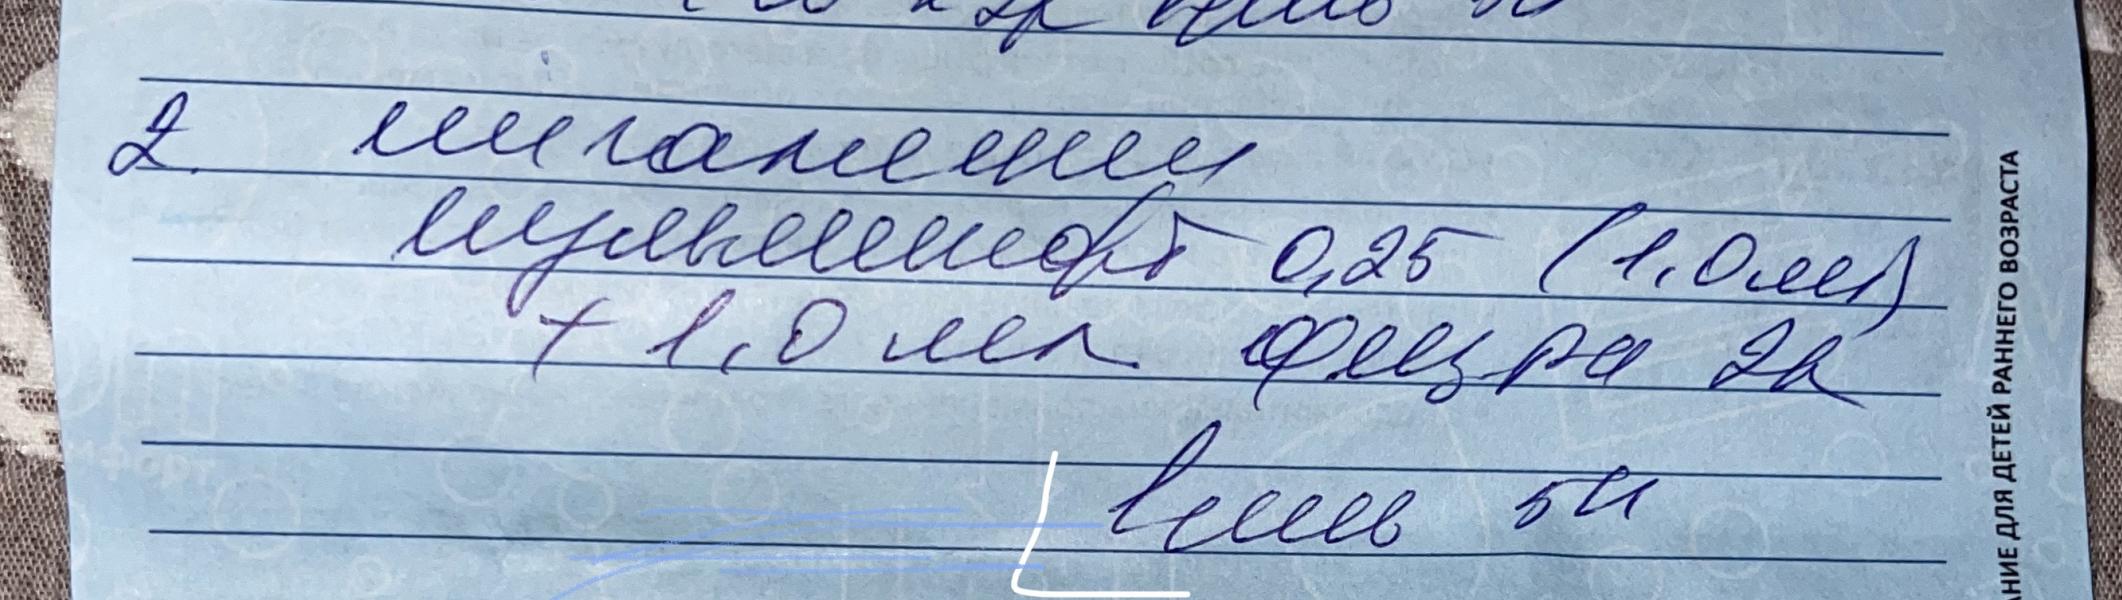 2. ингаляции
пульмикорт 0,25 (1,0 мл)
+ 1,0 мл физ ра 2р
в день 5д
АНИЕ ДЛЯ ДЕТЕЙ РАННЕГО ВОЗРАСТА